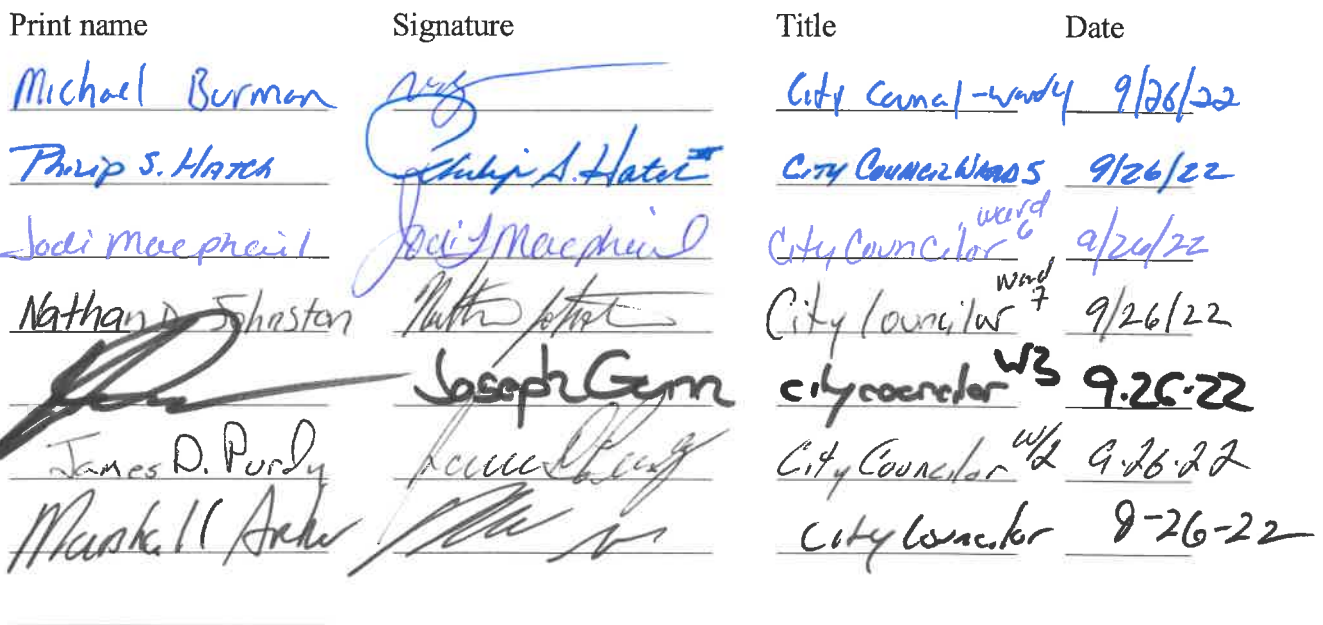 Print name Signature Title Date
Michael Burman City Council-Ward 4 9/26/22
Philip S. Hatch Philip S. Hatch III City Council Ward 5 9/26/22
Jodi Macphail Jodi L Macphail City Councilor ward 6 9/26/22
Nathan D. Johnston City Councilor ward 7 9/26/22
Joseph Gunn city councilor W3 9.26.22
James D. Purdy James D Purdy City Councilor W/2 9.26.22
Marshall Archer City Councilor 8-26-22